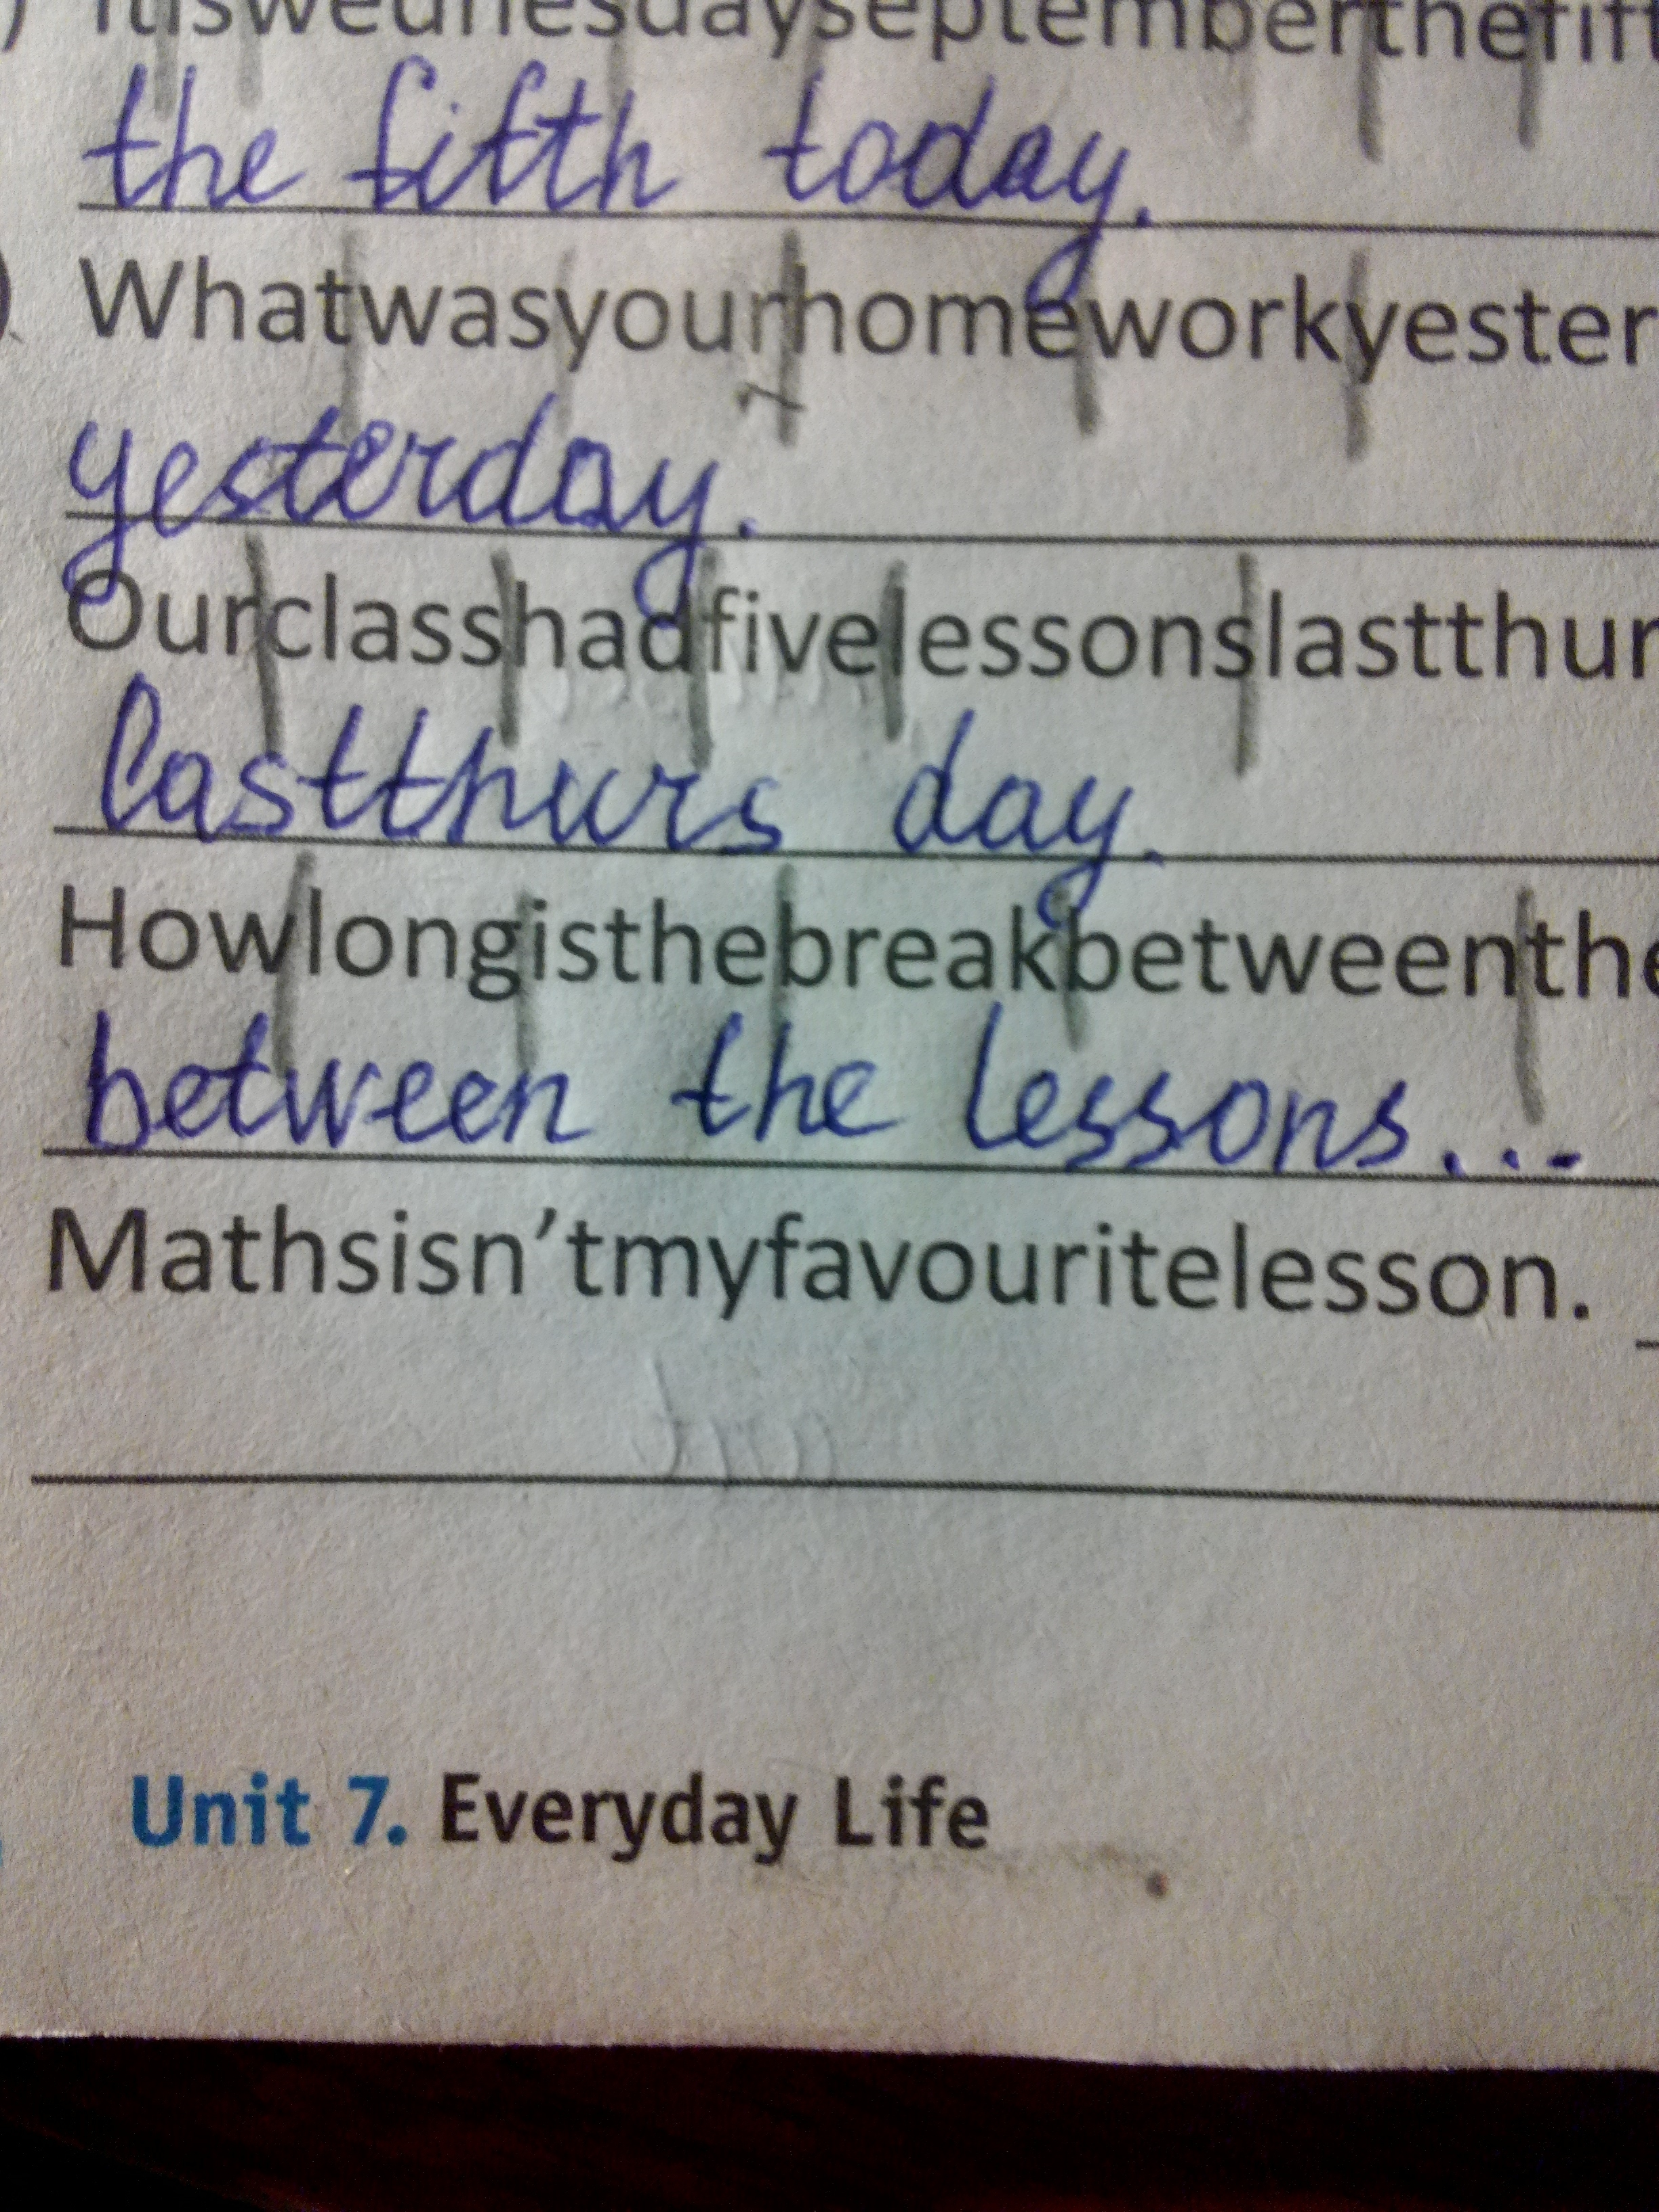 ) Itiswednesdayseptemberthefift
the fifth today.
) Whatwasyourhomeworkyester
yesterday.
Ourclasshadfivelessonslastthur
lastthurs day.
Howlongisthebreakbetweenthe
between the lessons...
Mathsisn’tmyfavouritelesson.
Unit 7. Everyday Life